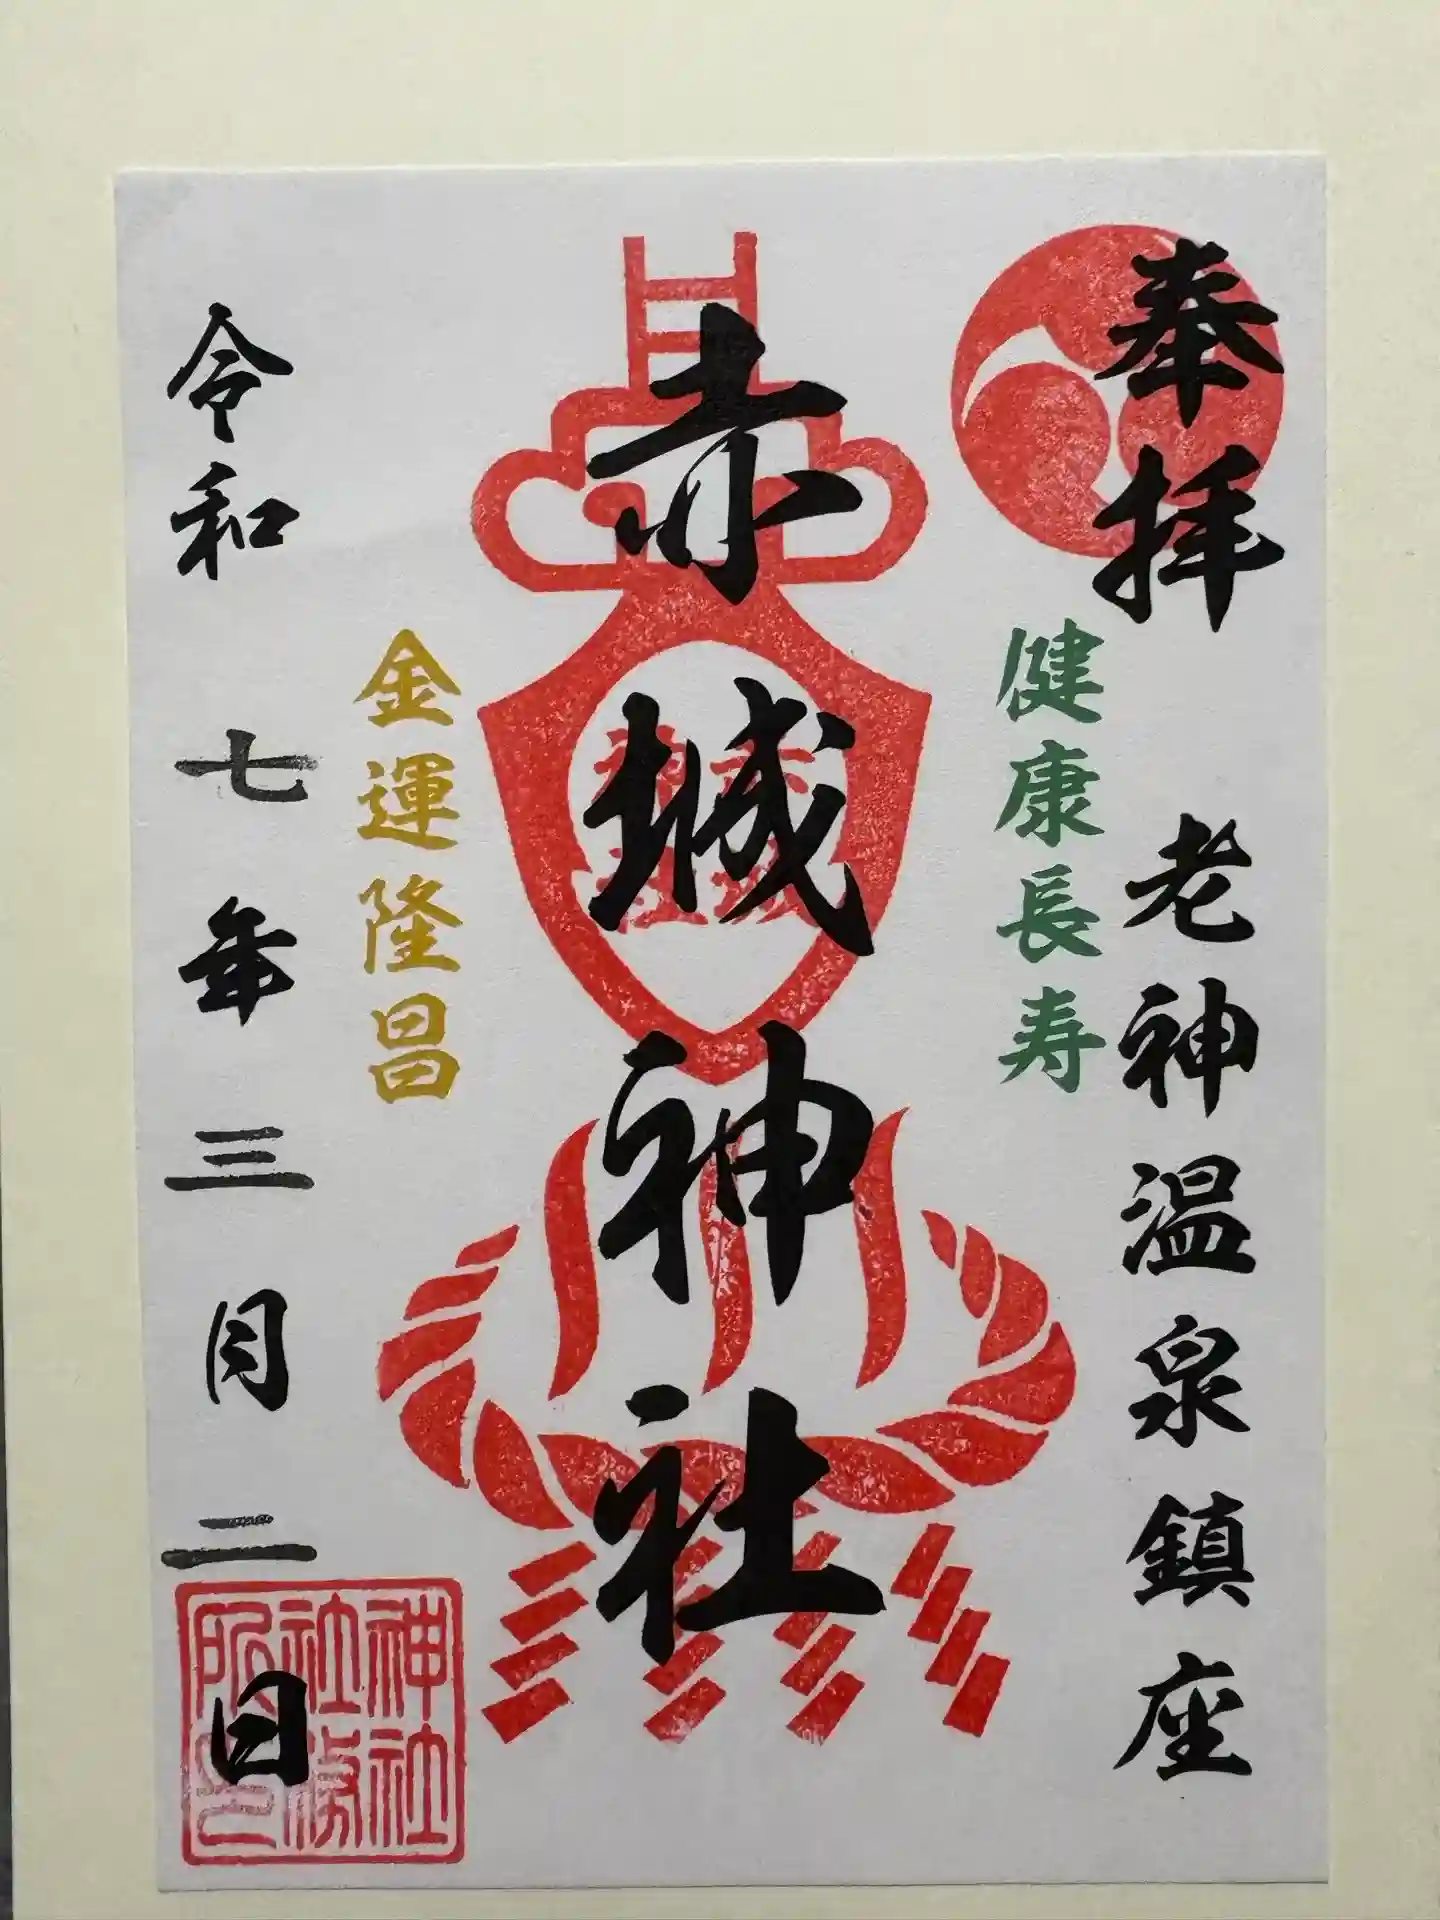 奉拝
老神温泉鎮座
健康長寿
赤城神社
金運隆昌
令和七年三月二日
神社
社務
所印